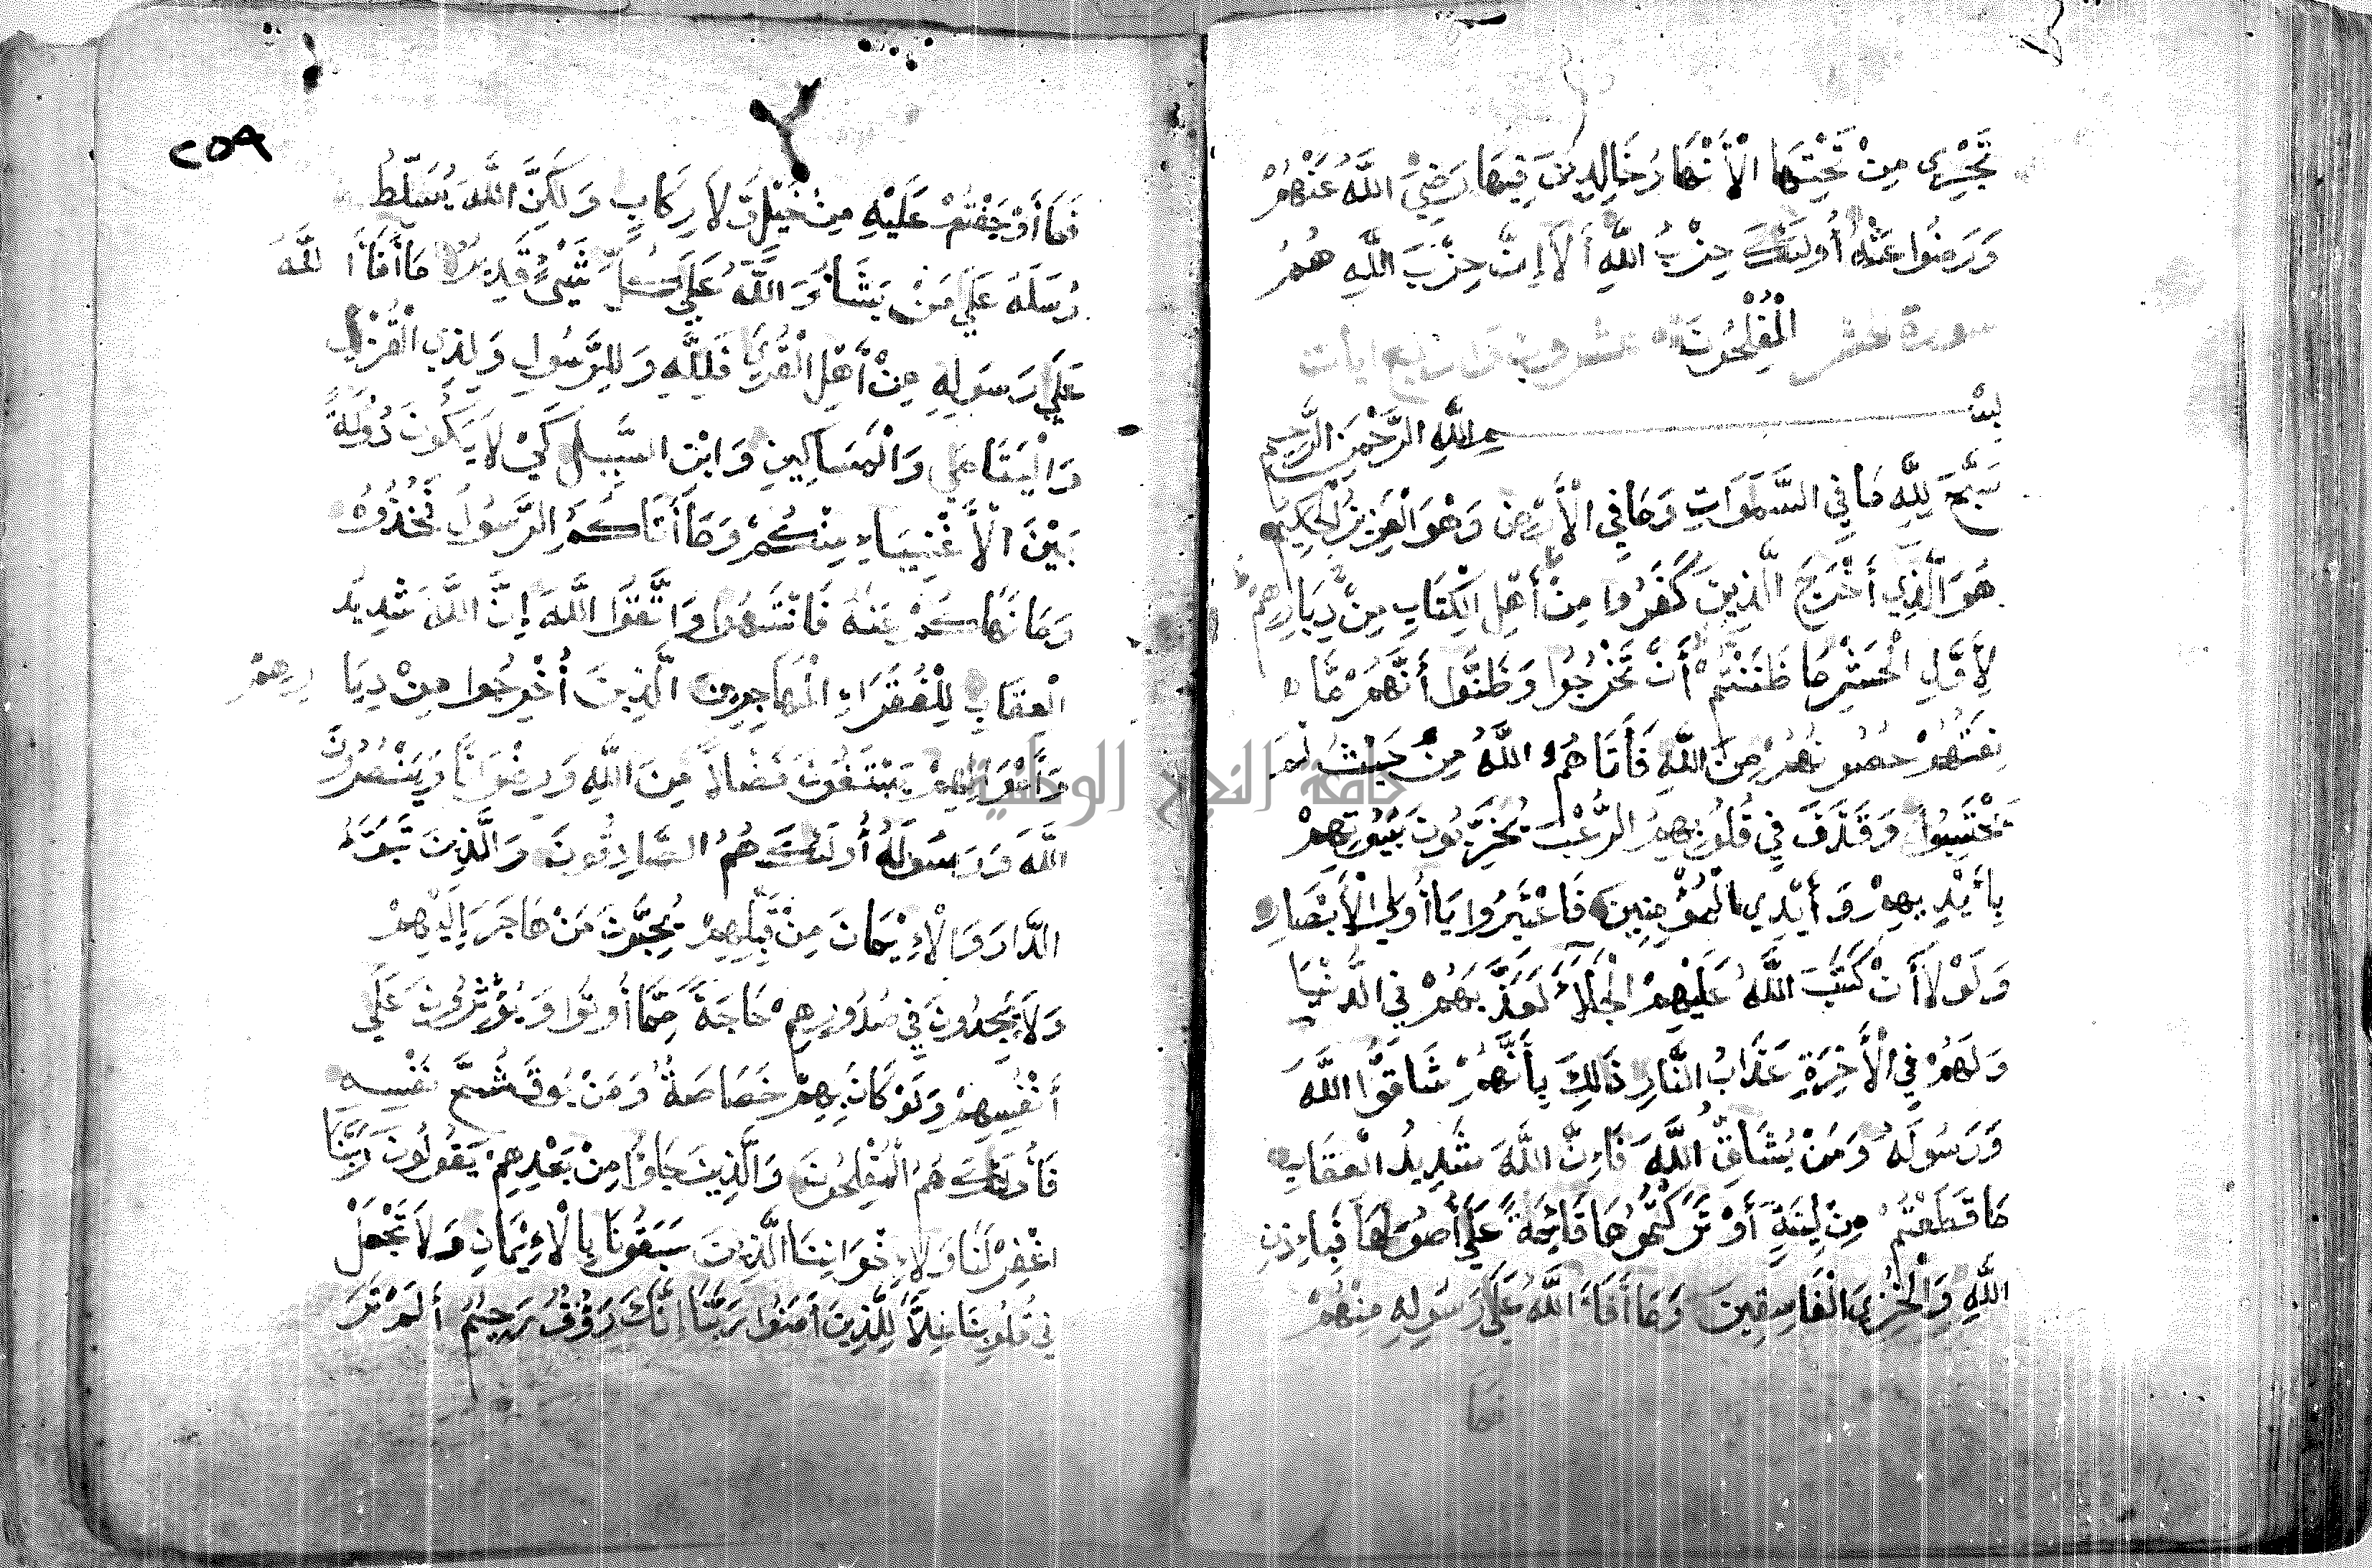 تَجْرِي مِنْ تَحْتِهَا الْأَنْهَارُ خَالِدِينَ فِيهَا رَضِيَ اللَّهُ عَنْهُمْ
وَرَضُوا عَنْهُ أُولَئِكَ حِزْبُ اللَّهِ أَلَا إِنَّ حِزْبَ اللَّهِ هُمُ
الْمُفْلِحُونَ
سورة الحشر عشرون واربع ايات
بِسْمِ اللَّهِ الرَّحْمَنِ الرَّحِيمِ
سَبَّحَ لِلَّهِ مَا فِي السَّمَوَاتِ وَمَا فِي الْأَرْضِ وَهُوَ الْعَزِيزُ الْحَكِيمُ
هُوَ الَّذِي أَخْرَجَ الَّذِينَ كَفَرُوا مِنْ أَهْلِ الْكِتَابِ مِنْ دِيَارِهِمْ
لِأَوَّلِ الْحَشْرِ مَا ظَنَنْتُمْ أَنْ تَخْرُجُوا وَظَنُّوا أَنَّهُمْ مَا
نِعَتُهُمْ حُصُونُهُمْ مِنَ اللَّهِ فَأَتَاهُمُ اللَّهُ مِنْ حَيْثُ لَمْ
يَحْتَسِبُوا وَقَذَفَ فِي قُلُوبِهِمُ الرُّعْبَ يُخَرِّبُونَ بُيُوتَهُمْ
بِأَيْدِيهِمْ وَأَيْدِي الْمُؤْمِنِينَ فَاعْتَبِرُوا يَا أُولِي الْأَبْصَارِ
وَلَوْلَا أَنْ كَتَبَ اللَّهُ عَلَيْهِمُ الْجَلَاءَ لَعَذَّبَهُمْ فِي الدُّنْيَا
وَلَهُمْ فِي الْأَخِرَةِ عَذَابُ النَّارِ ذَلِكَ بِأَنَّهُمْ شَاقُّوا اللَّهَ
وَرَسُولَهُ وَمَنْ يُشَاقِّ اللَّهَ فَإِنَّ اللَّهَ شَدِيدُ الْعِقَابِ
مَا قَطَعْتُمْ مِنْ لِينَةٍ أَوْ تَرَكْتُمُوهَا قَائِمَةً عَلَى أُصُولِهَا فَبِإِذْنِ
اللَّهِ وَلِيُخْزِيَ الْفَاسِقِينَ وَمَا أَفَاءَ اللَّهُ عَلَى رَسُولِهِ مِنْهُمْ
فما
٢٥٩
فَمَا أَوْجَفْتُمْ عَلَيْهِ مِنْ خَيْلٍ وَلَا رِكَابٍ وَلَكِنَّ اللَّهَ يُسَلِّطُ
رُسُلَهُ عَلَى مَنْ يَشَاءُ وَاللَّهُ عَلَى كُلِّ شَيْءٍ قَدِيرٌ مَا أَفَاءَ اللَّهُ
عَلَى رَسُولِهِ مِنْ أَهْلِ الْقُرَى فَلِلَّهِ وَلِلرَّسُولِ وَلِذِي الْقُرْبَى
وَالْيَتَامَى وَالْمَسَاكِينِ وَابْنِ السَّبِيلِ كَيْ لَا يَكُونَ دُولَةً
بَيْنَ الْأَغْنِيَاءِ مِنْكُمْ وَمَا أَتَاكُمُ الرَّسُولُ فَخُذُوهُ
وَمَا نَهَاكُمْ عَنْهُ فَانْتَهُوا وَاتَّقُوا اللَّهَ إِنَّ اللَّهَ شَدِيدُ
الْعِقَابِ لِلْفُقَرَاءِ الْمُهَاجِرِينَ الَّذِينَ أُخْرِجُوا مِنْ دِيَارِهِمْ
وَأَمْوَالِهِمْ يَبْتَغُونَ فَضْلًا مِنَ اللَّهِ وَرِضْوَانًا وَيَنْصُرُونَ
اللَّهَ وَرَسُولَهُ أُولَئِكَ هُمُ الصَّادِقُونَ وَالَّذِينَ تَبَوَّءُ
الدَّارَ وَالْإِيْمَانَ مِنْ قَبْلِهِمْ يُحِبُّونَ مَنْ هَاجَرَ إِلَيْهِمْ
وَلَا يَجِدُونَ فِي صُدُورِهِمْ حَاجَةً مِمَّا أُوتُوا وَيُؤْثِرُونَ عَلَى
أَنْفُسِهِمْ وَلَوْ كَانَ بِهِمْ خَصَاصَةٌ وَمَنْ يُوقَ شُحَّ نَفْسِهِ
فَأُولَئِكَ هُمُ الْمُفْلِحُونَ وَالَّذِينَ جَاؤُا مِنْ بَعْدِهِمْ يَقُولُونَ رَبَّنَا
اغْفِرْ لَنَا وَلِإِخْوَانِنَا الَّذِينَ سَبَقُونَا بِالْإِيْمَانِ وَلَا تَجْعَلْ
فِي قُلُوبِنَا غِلًّا لِلَّذِينَ أَمَنُوا رَبَّنَا إِنَّكَ رَؤُفٌ رَحِيمٌ أَلَمْ تَرَ
جامعة النجاح الوطنية